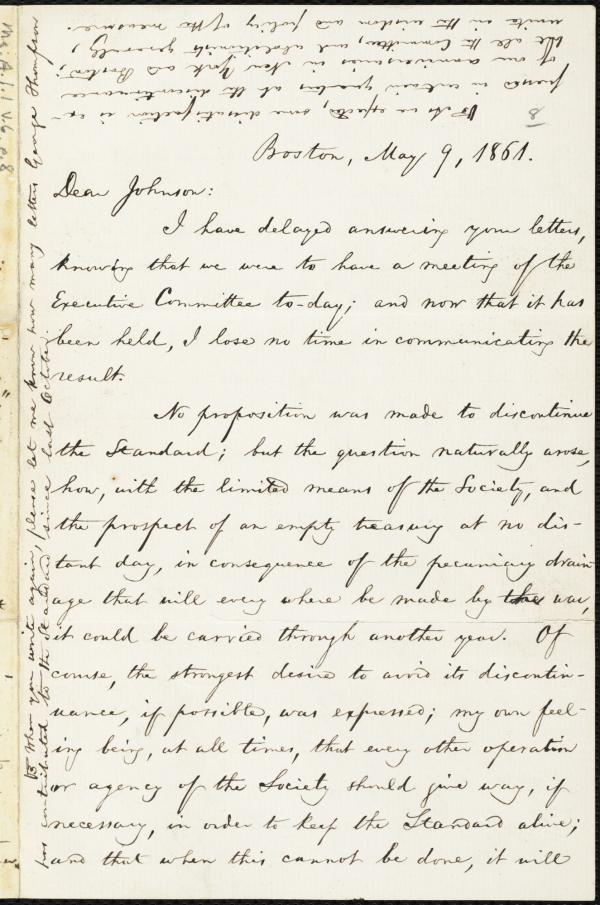 Boston, May 9, 1861.
Dear Johnson:
I have delayed answering your letters,
knowing that we were to have a meeting of the
Executive Committee to-day; and now that it has
been held, I lose no time in communicating the
result.
No proposition was made to discontinue
the Standard; but the question naturally arose,
how, with the limited means of the Society, and
the prospect of an empty treasury at no dis-
tant day, in consequence of the pecuniary drain-
age that will every where be made by the war,
it could be carried through another year. Of
course, the strongest desire to avoid its discontin-
uance, if possible, was expressed; my own feel-
ing being, at all times, that every other operation
or agency of the Society should give way, if
necessary, in order to keep the Standard alive;
and that when this cannot be done, it will
When you write again, please let me know how many letters George Thompson
has contributed to the Standard since last October.
As we expected, some dissatisfaction is ex-
pressed in certain quarters at the discontinuance
of our anniversaries in New York and Boston;
but all the Committee, and abolitionists generally,
unite in the wisdom and policy of the measure.
8
Ms. A. 1. 1 v. 6, p. 8